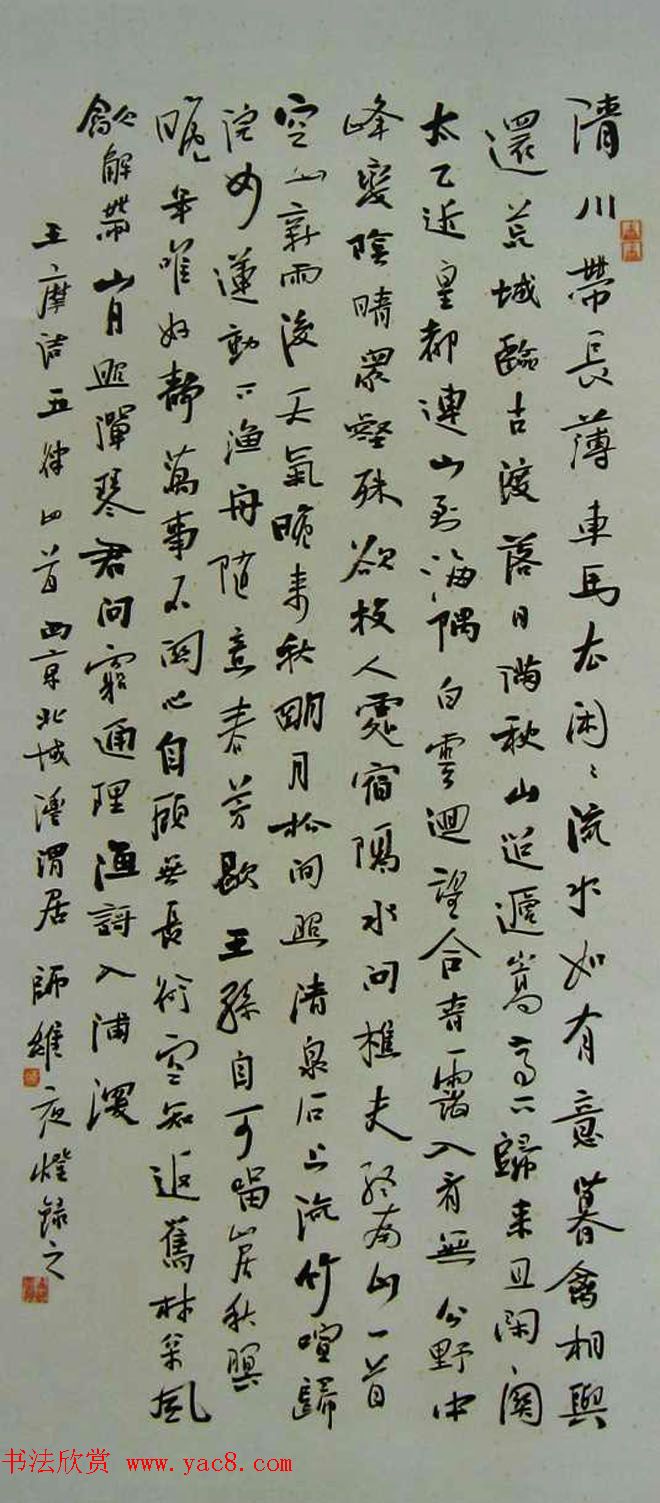 清川帶長薄車馬去閑〻流水如有意暮禽相與
還荒城臨古渡落日滿秋山迢遞嵩高下歸来且閑〻関
太乙近皇都連山到海隅白雲迴望合青靄入看無分野中
峰變陰晴眾壑殊欲投人處宿隔水問樵夫終南山一首
空山新雨後天氣晚來秋明月松间照清泉石上流竹喧歸
浣女蓮動下漁舟隨意春芳歇王孫自可留山居秋暝
晚年唯好靜萬事不関心自顧無長術空知返舊林松風
龡解帶山月照彈琴君问窮通理漁謌入浦深
王摩詰五律四首西京北城灃渭居師維夜燈錄之
书法欣赏 www.yac8.com